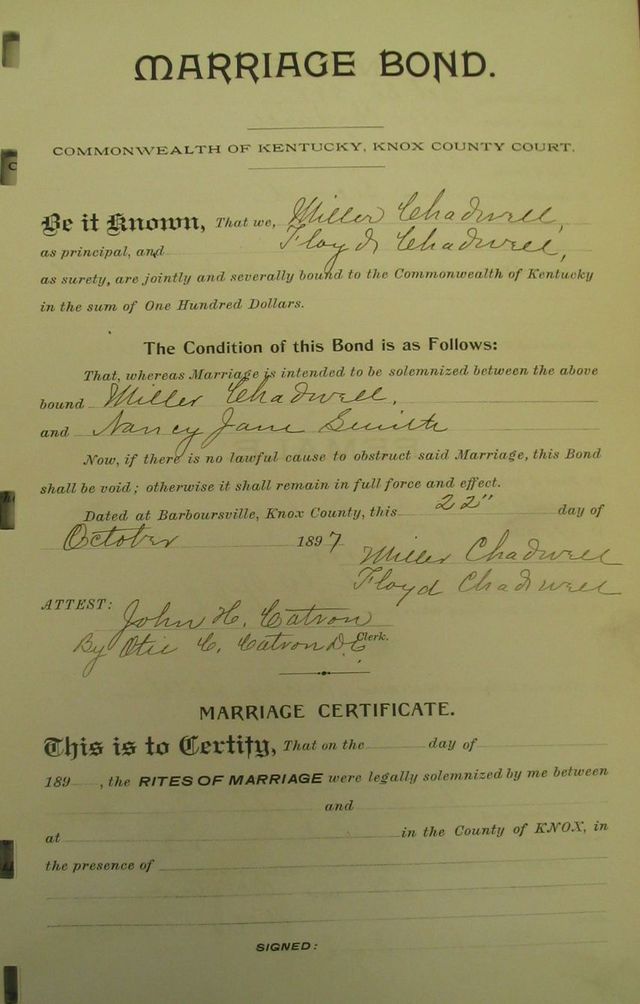 MARRIAGE BOND.
COMMONWEALTH OF KENTUCKY, KNOX COUNTY COURT.
Be it Known, That we, Miller Chadwell,
as principal, and Floyd Chadwell,
as surety, are jointly and severally bound to the Commonwealth of Kentucky
in the sum of One Hundred Dollars.
The Condition of this Bond is as Follows:
That, whereas Marriage is intended to be solemnized between the above
bound Miller Chadwell,
and Nancy Jane Smith
Now, if there is no lawful cause to obstruct said Marriage, this Bond
shall be void; otherwise it shall remain in full force and effect.
Dated at Barboursville, Knox County, this 22" day of
October 1897
Miller Chadwell
Floyd Chadwell
ATTEST: John H. Catron
By Otie C. Catron D.C. Clerk.
MARRIAGE CERTIFICATE.
This is to Certify, That on the day of
189 , the RITES OF MARRIAGE were legally solemnized by me between
and
at in the County of KNOX, in
the presence of
SIGNED: